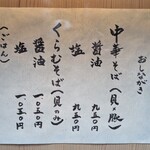 おしながき
中華そば(貝、豚)
醤油 九五〇円
塩 九五〇円
くらむそば(貝のみ)
醤油 一〇五〇円
塩 一〇五〇円
(ごはん)